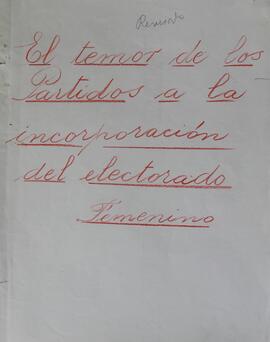 Revisado
El temor de los
Partidos a la
incorporación
del electorado
Femenino